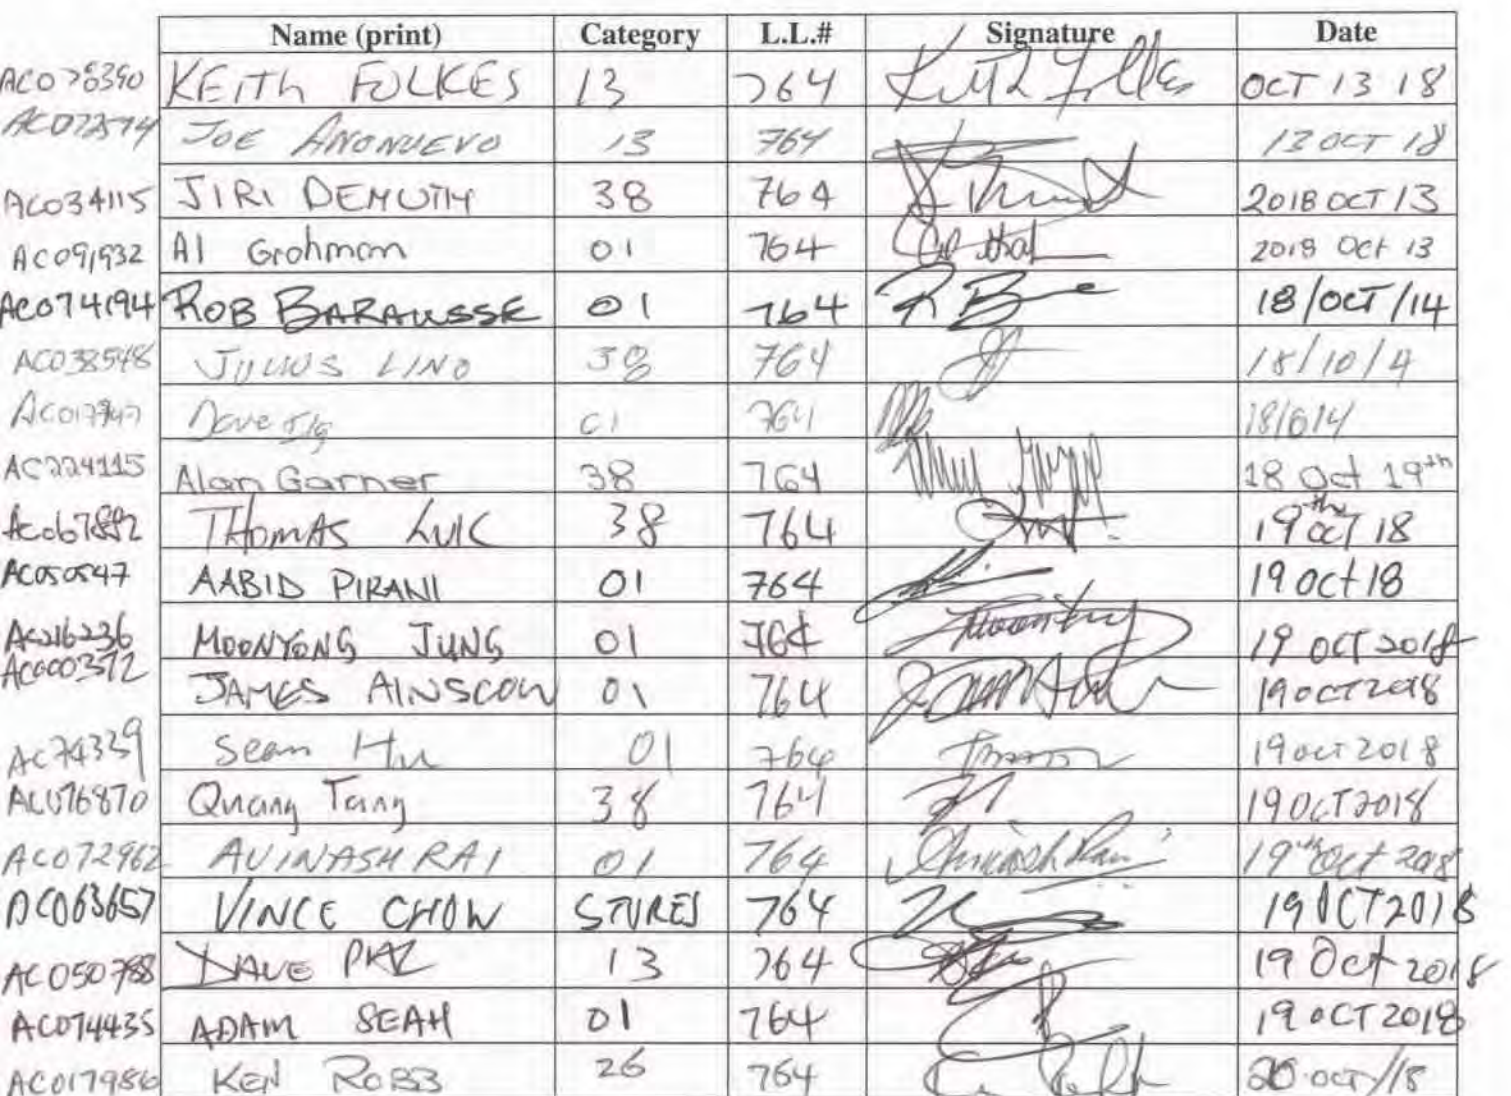 Name (print) Category L.L.# Signature Date
KEITH FOLKES 13 764 OCT 13 18
JOE ANONUEVO 13 764 13 OCT 18
AC034115 JIRI DEMUTH 38 764 2018 OCT 13
AC091932 Al Grohman 01 764 2018 Oct 13
AC074194 ROB BARAUSSE 01 764 18/OCT/14
AC038548 JULIUS LINO 38 764 18/10/4
Dave 01 764
AC224115 Alan Garner 38 764 18 Oct 19th
AC067882 THOMAS LUK 38 764 19th OCT 18
AC050547 AABID PIRANI 01 764 19 Oct 18
AC216236 MOONYONG JUNG 01 764 19 OCT 2018
AC000372 JAMES AINSCOW 01 764 19 OCT 2018
AC74339 Sean Hu 01 764 19 OCT 2018
AC076870 Quang Tang 38 764 19 OCT 2018
AC072962 AVINASH RAI 01 764 19th Oct 2018
AC063657 VINCE CHOW STORES 764 19 OCT 2018
AC050788 DAVE PAZ 13 764 19 Oct 2018
AC074435 ADAM SEAH 01 764 19 OCT 2018
AC017986 KEN ROBB 26 764 20 OCT/18